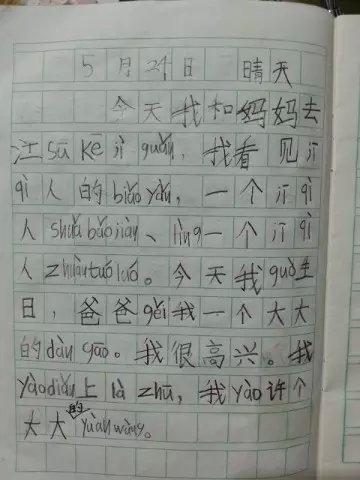 5月29日 晴天
今天我和妈妈去
江sū kē jì guǎn，我看见jī
qì人的biǎo yǎn，一个jī qì
人shuǎ bǎo jiàn、lìng一个jī qì
人zhuàn tuó luó。今天我guò生
日，爸爸gěi我一个大大
的dàn gāo。我很高兴。我
yào diǎn上là zhú，我yào许个
大大的yuàn wàng。